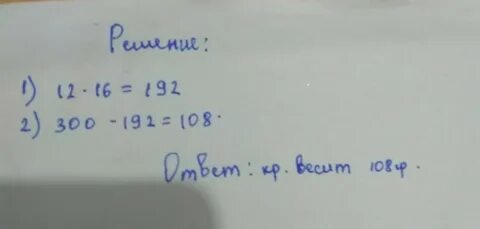 Решение:
1) 12 · 16 = 192
2) 300 - 192 = 108.
Ответ: кр. весит 108 гр.